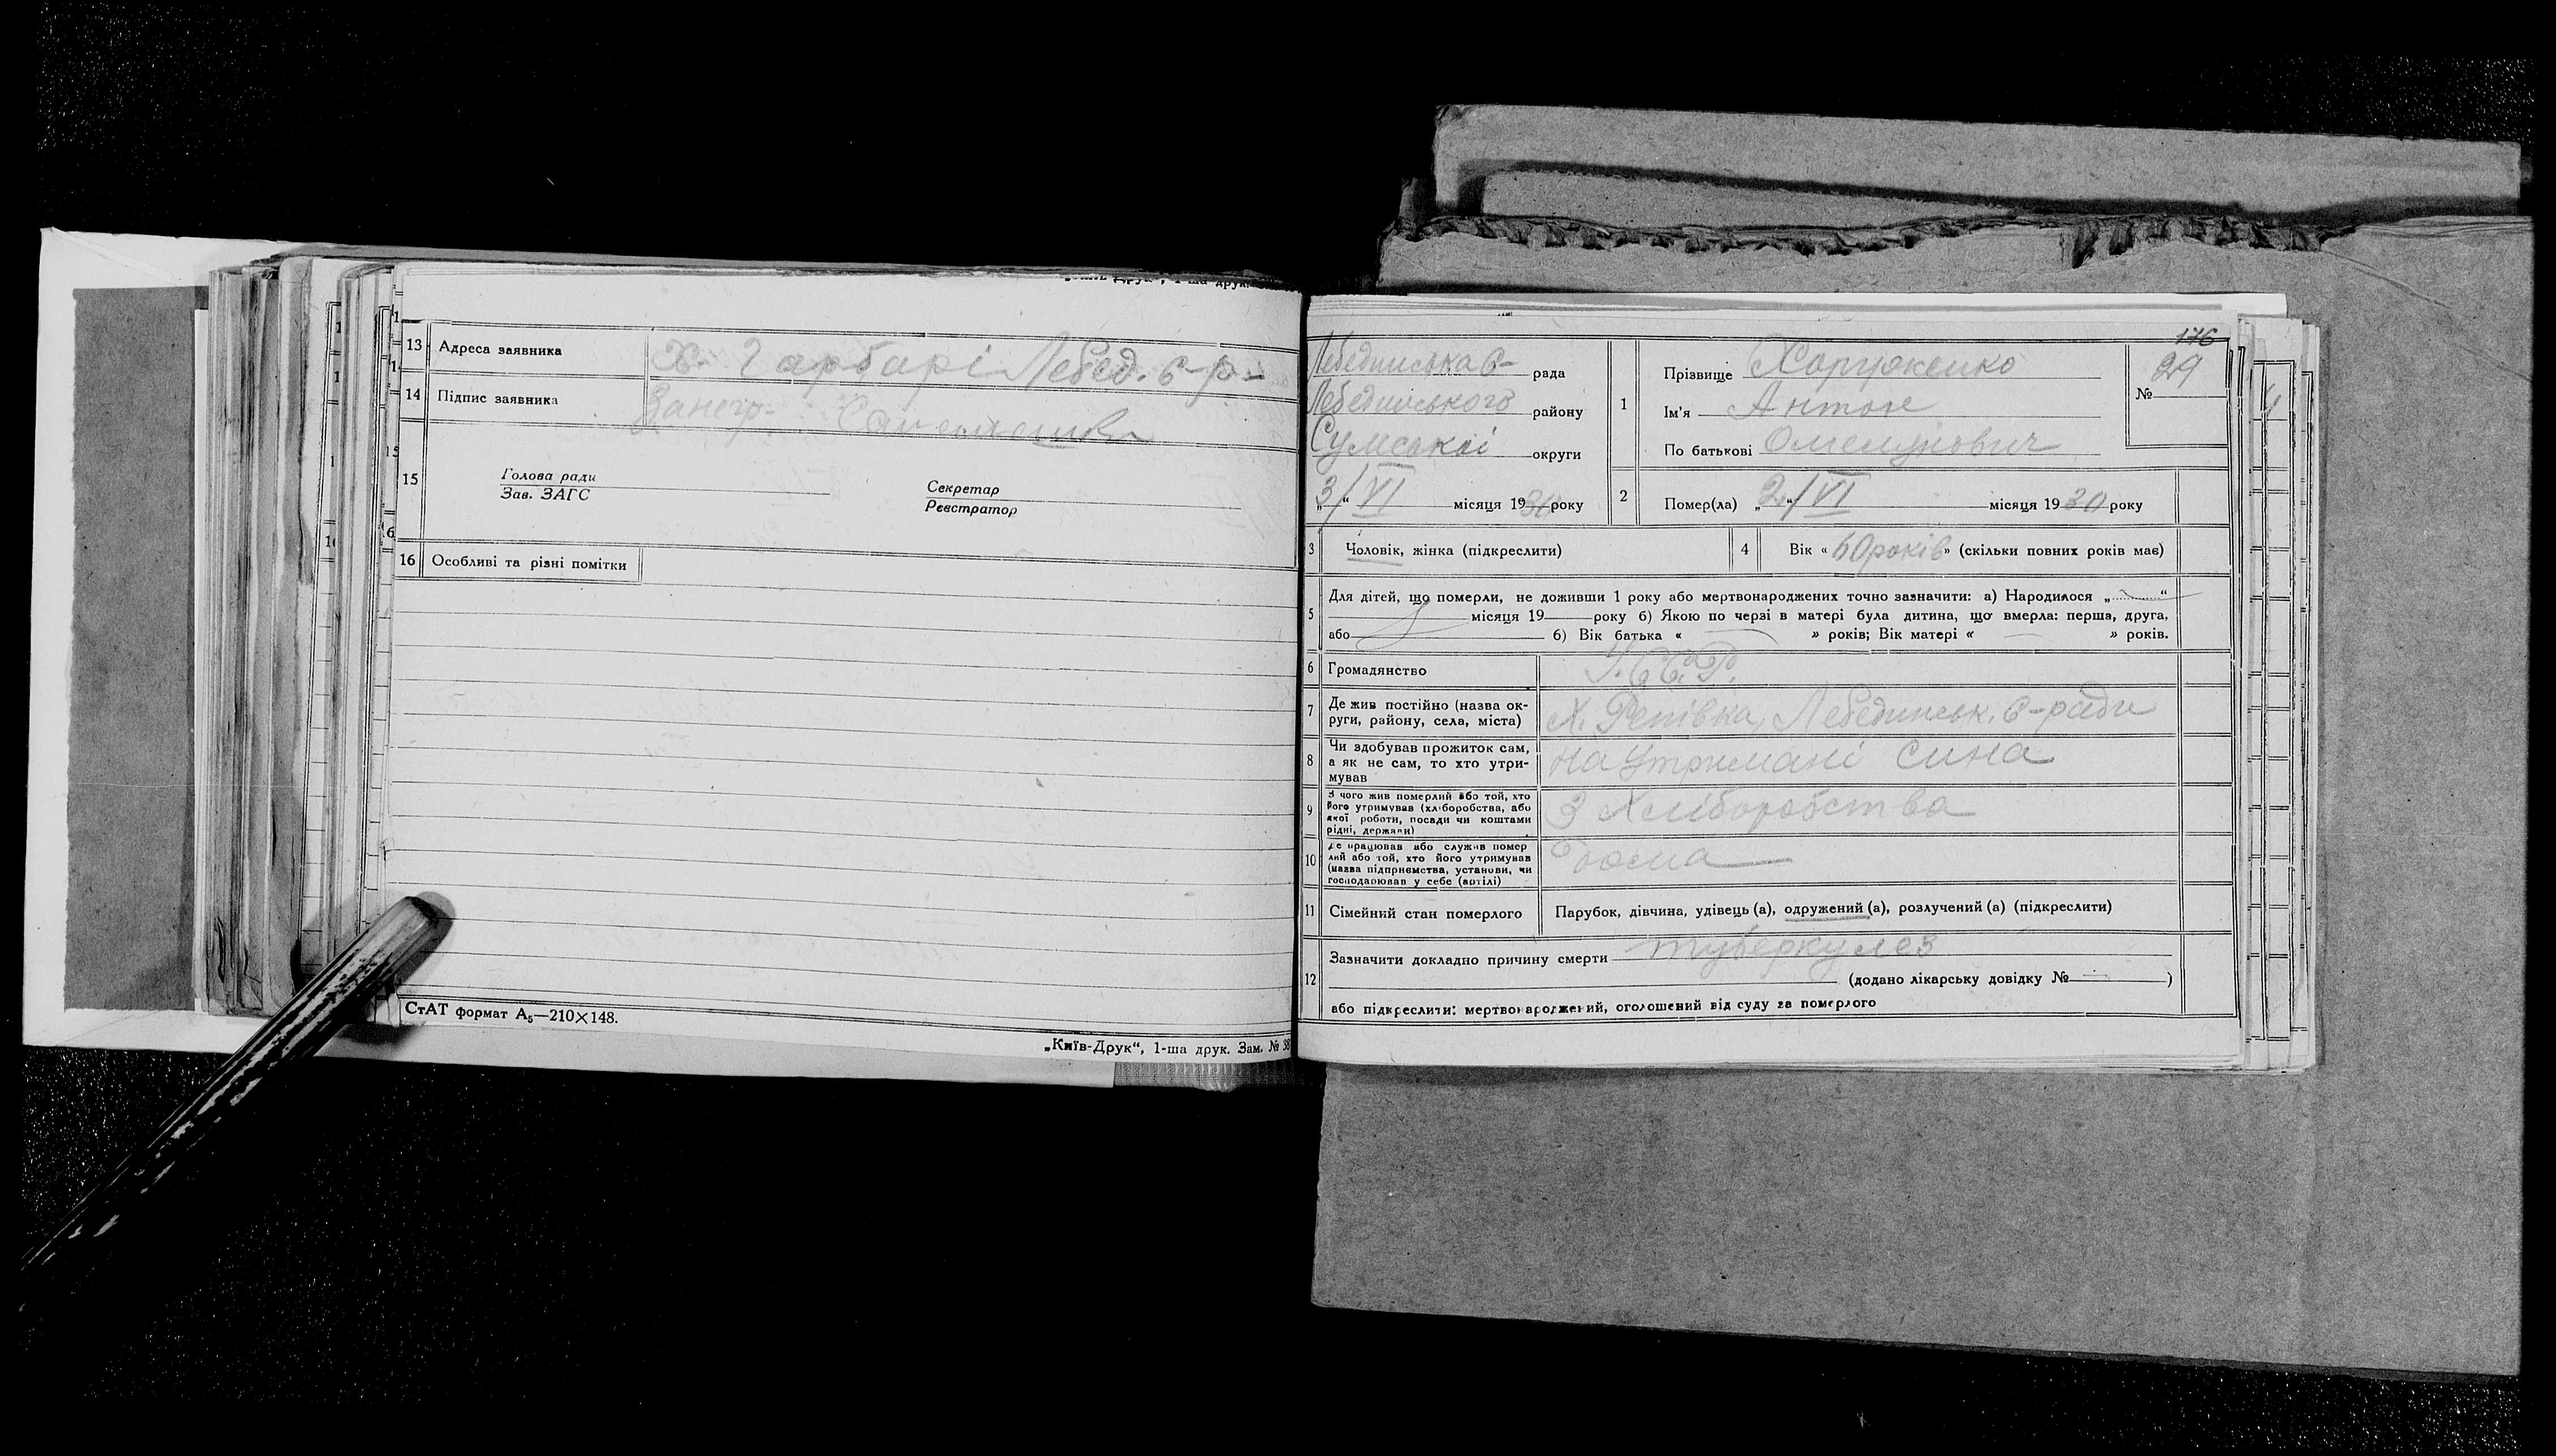 13 Адреса заявника Х. Гарбарі Лебед. с-р-
14 Підпис заявника
15 Голова ради
Зав. ЗАГС
Секретар
Реєстратор
16 Особливі та різні помітки
СтАТ формат А5—210×148.
„Київ-Друк“, 1-ша друк. Зам. № 38
176
Лебединська с- рада
Лебединського району
Сумської округи
„3/“ VI місяця 1930 року
1 Прізвище Хоруженко
Ім'я Антон
По батькові Омелянович
№ 29
2 Помер(ла) „2/“ VI місяця 1930 року
3 Чоловік, жінка (підкреслити)
4 Вік « 60 років » (скільки повних років має)
5 Для дітей, що померли, не доживши 1 року або мертвонароджених точно зазначити: а) Народилося „ “
місяця 19 року б) Якою по черзі в матері була дитина, що вмерла: перша, друга,
або б) Вік батька « » років; Вік матері « » років.
6 Громадянство У.С.С.Р.
7 Де жив постійно (назва ок-
руги, району, села, міста) Х. Репівка, Лебединськ. с-ради
8 Чи здобував прожиток сам,
а як не сам, то хто утри-
мував на утримані сина
9 З чого жив померлий або той, хто
його утримував (хліборобства, або
якої роботи, посади чи коштами
рідні, держави) З Хліборобства
10 Де працював або служив помер
лий або той, хто його утримував
(назва підприємства, установи, чи
господарював у себе (артілі) дома
11 Сімейний стан померлого Парубок, дівчина, удівець (а), одружений (а), розлучений (а) (підкреслити)
12 Зазначити докладно причину смерти туберкулез
(додано лікарську довідку № — )
або підкреслити: мертвонароджений, оголошений від суду за померлого